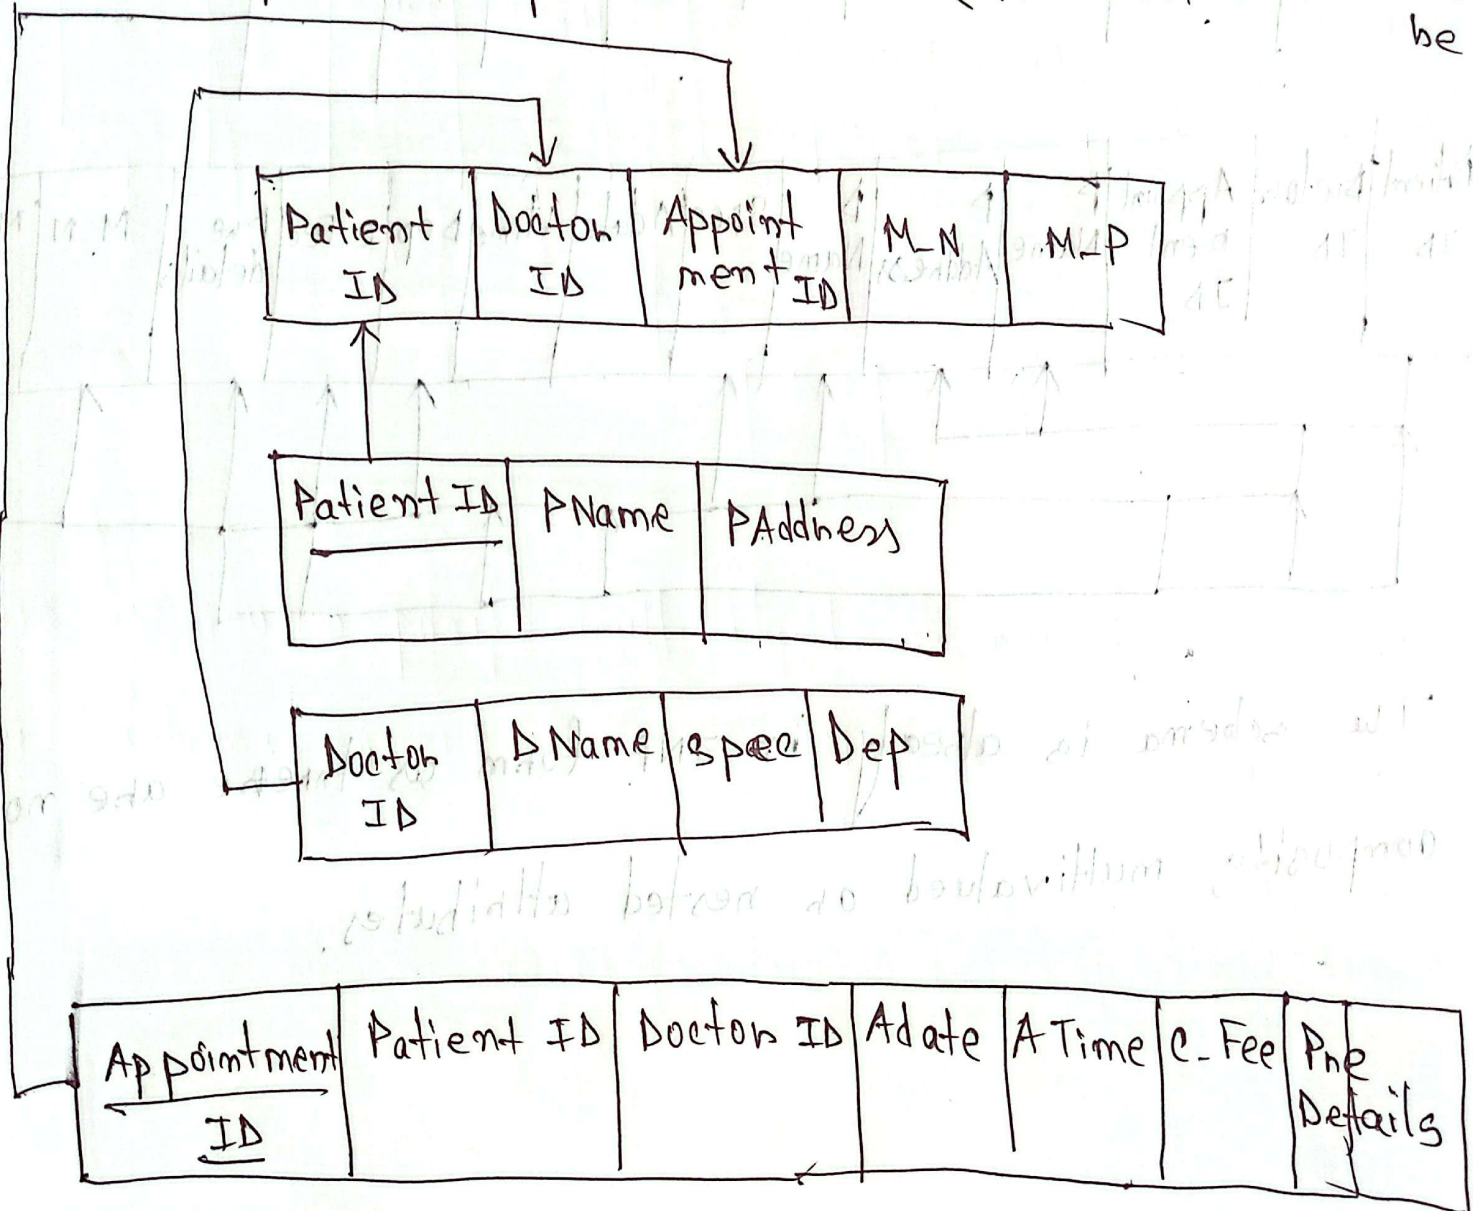 be
Patient ID
Doctor ID
Appointment ID
M_N
M_P
Patient ID
PName
PAddress
Doctor ID
DName
spec
Dep
Appointment ID
Patient ID
Doctor ID
Adate
ATime
C_Fee
Pre Details